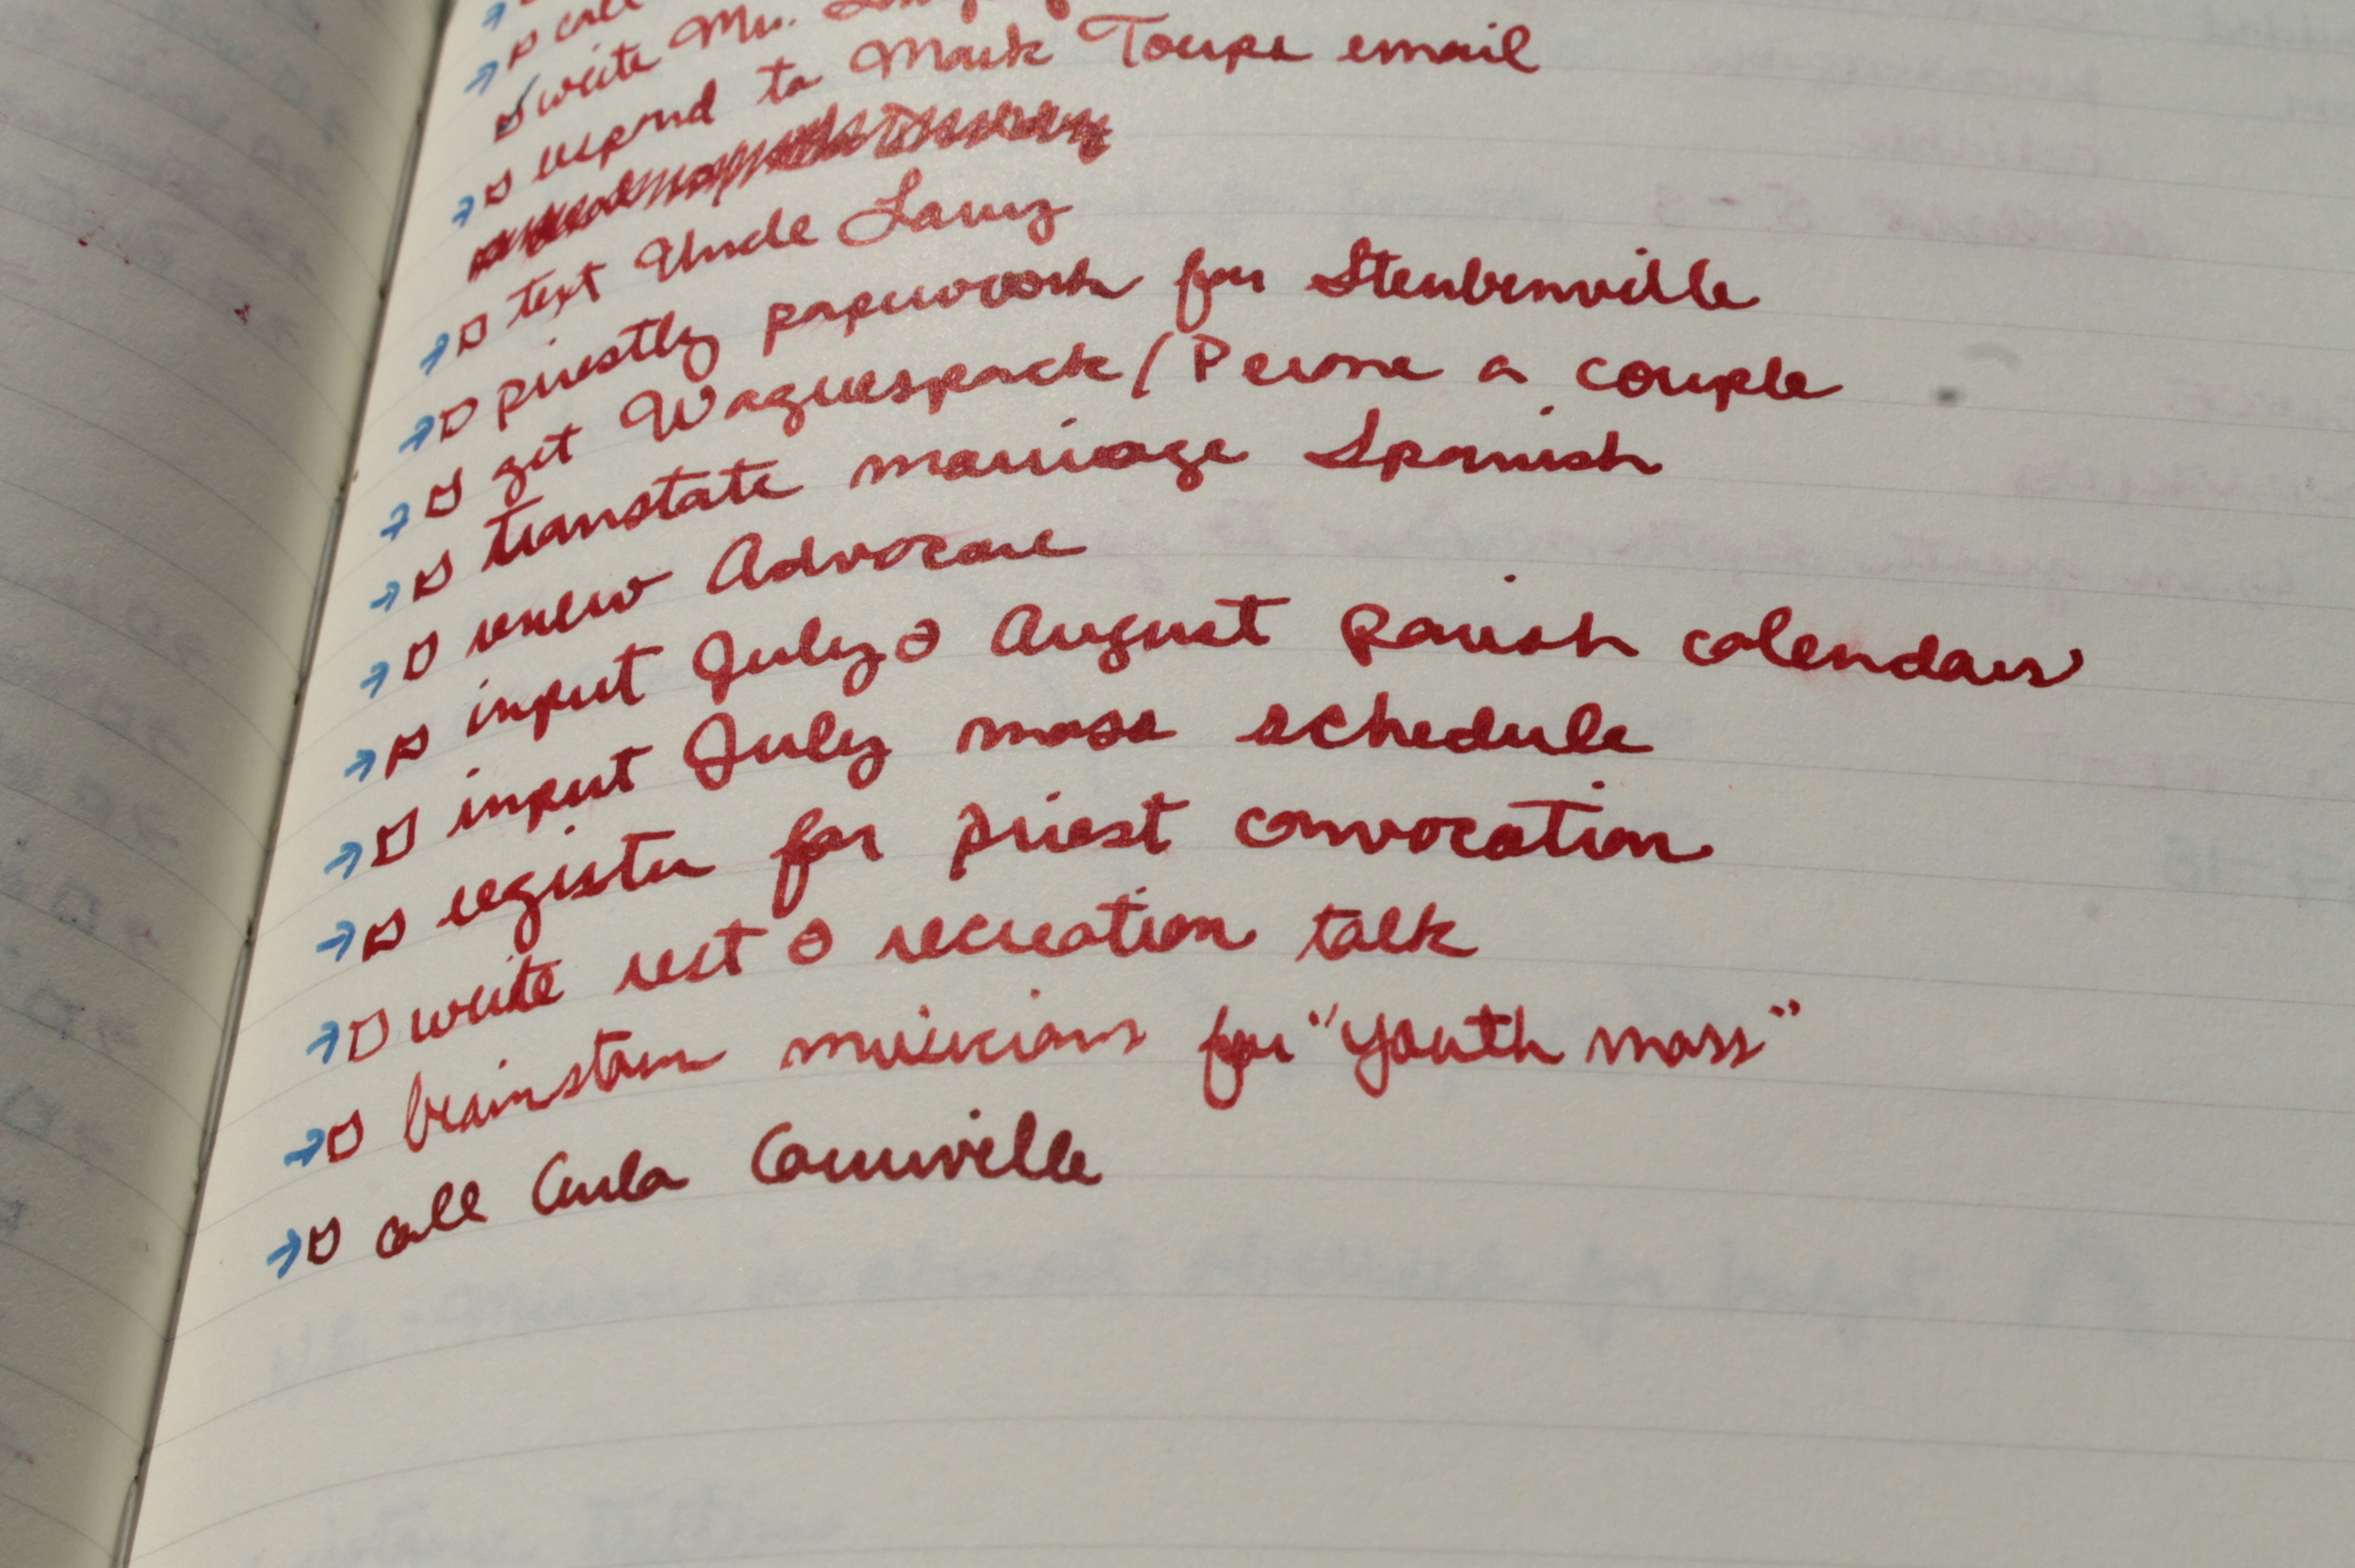 call
write Mr.
respond to Mark Toups email
text Uncle Larry
priestly paperwork for Steubenville
get Waguespack/Peirone a couple
translate marriage Spanish
renew Advocare
input July & August parish calendars
input July mass schedule
register for priest convocation
write rest & recreation talk
brainstorm musicians for "youth mass"
call Carla